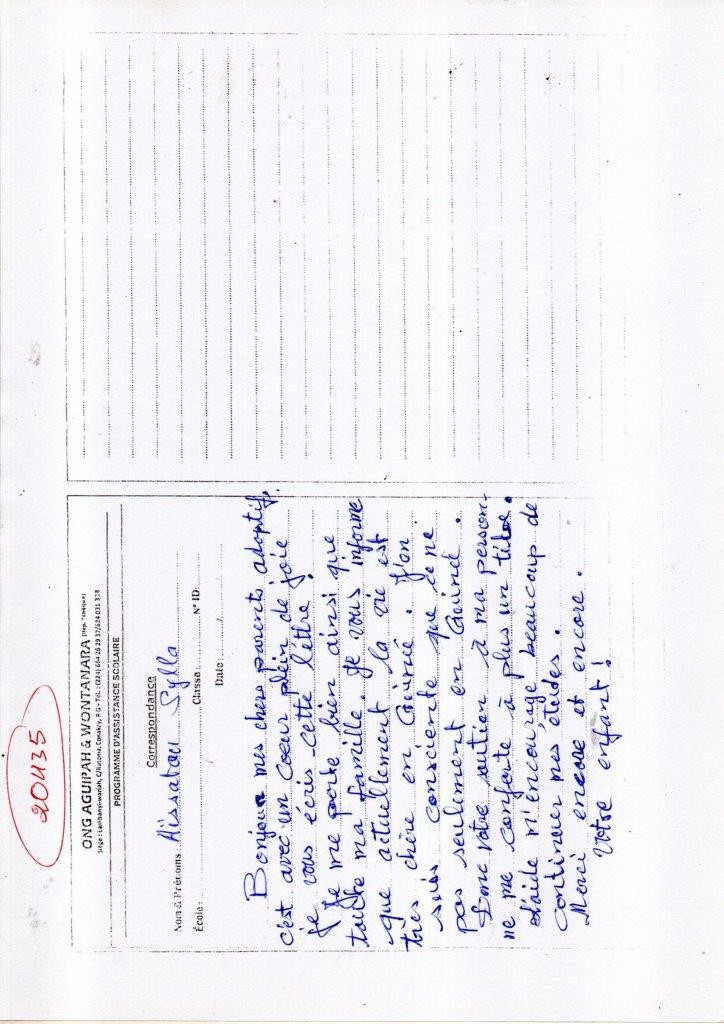 20435
ONG AGUIPAH & WONTANARA (Rep. Tchèque)
Siège : Lambanyi-wariah, C/Ratoma, Conakry, R G - Tél.: (224) 664 26 29 37/624 031 338
PROGRAMME D'ASSISTANCE SCOLAIRE
Correspondance
Nom & Prénoms Aïssatou Sylla
École: Classe: N° ID:
Date:
Bonjour mes chers parents adoptif,
c'est avec un coeur plein de joie
je vous écris cette lettre!
Je me porte bien ainsi que
toutte ma famille. Je vous informe
que actuellement la vie est
très chère en Guinée. J'on
suis consciente que ce ne
pas seulement en Guinée.
Donc votre soutien à ma person-
ne me conforte à plus un titre.
L'aide m'encourage beaucoup de
continuer mes études.
Merci encore et encore.
Votre enfant!